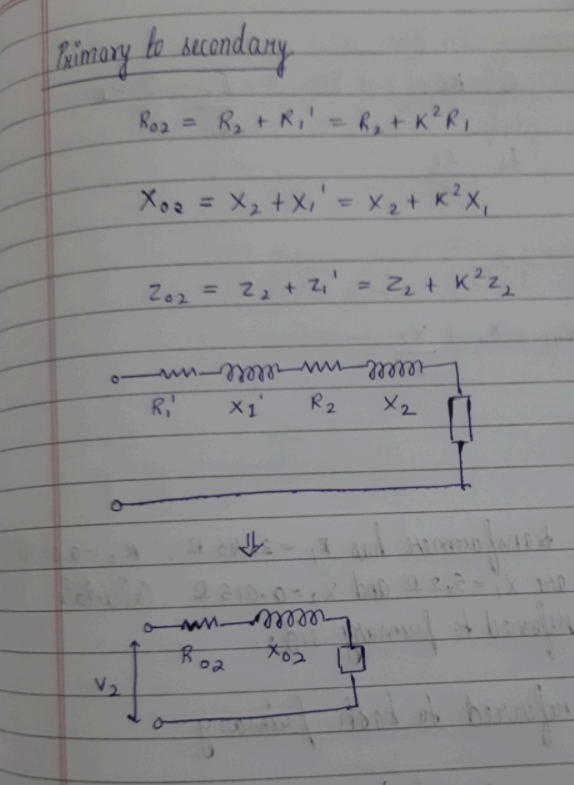 Primary to secondary
R₀₂ = R₂ + R₁' = R₂ + K²R₁
X₀₂ = X₂ + X₁' = X₂ + K²X₁
Z₀₂ = Z₂ + Z₁' = Z₂ + K²Z₂
R₁' X₁' R₂ X₂
⇓
R₀₂ X₀₂
V₂